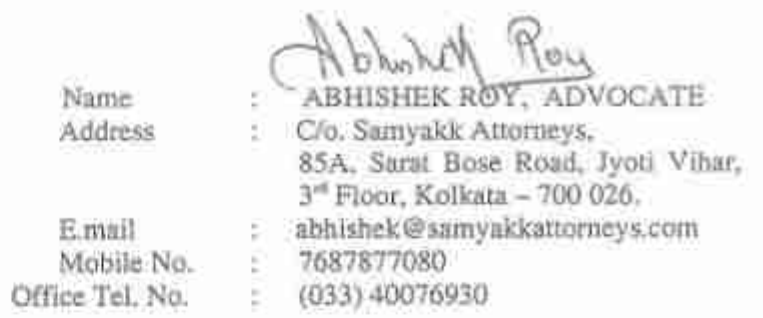 Abhishek Roy
Name : ABHISHEK ROY, ADVOCATE
Address : C/o. Samyakk Attorneys,
85A, Sarat Bose Road, Jyoti Vihar,
3rd Floor, Kolkata – 700 026.
E.mail : abhishek@samyakkattorneys.com
Mobile No. : 7687877080
Office Tel. No. : (033) 40076930